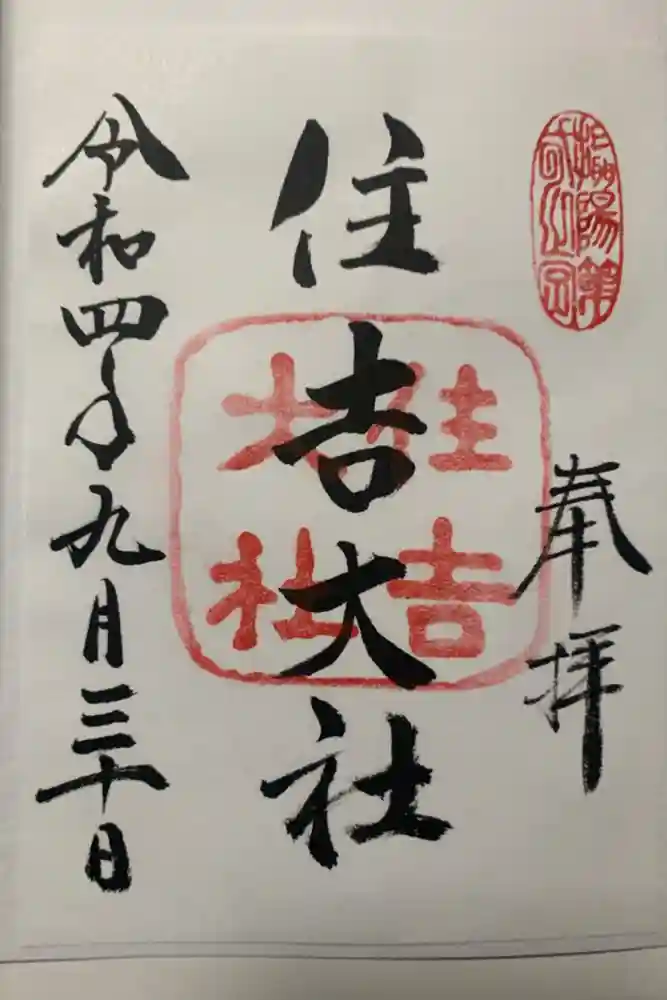 摂陽第一之宮
奉拝
住吉大社
住吉大社
令和四年九月三十日